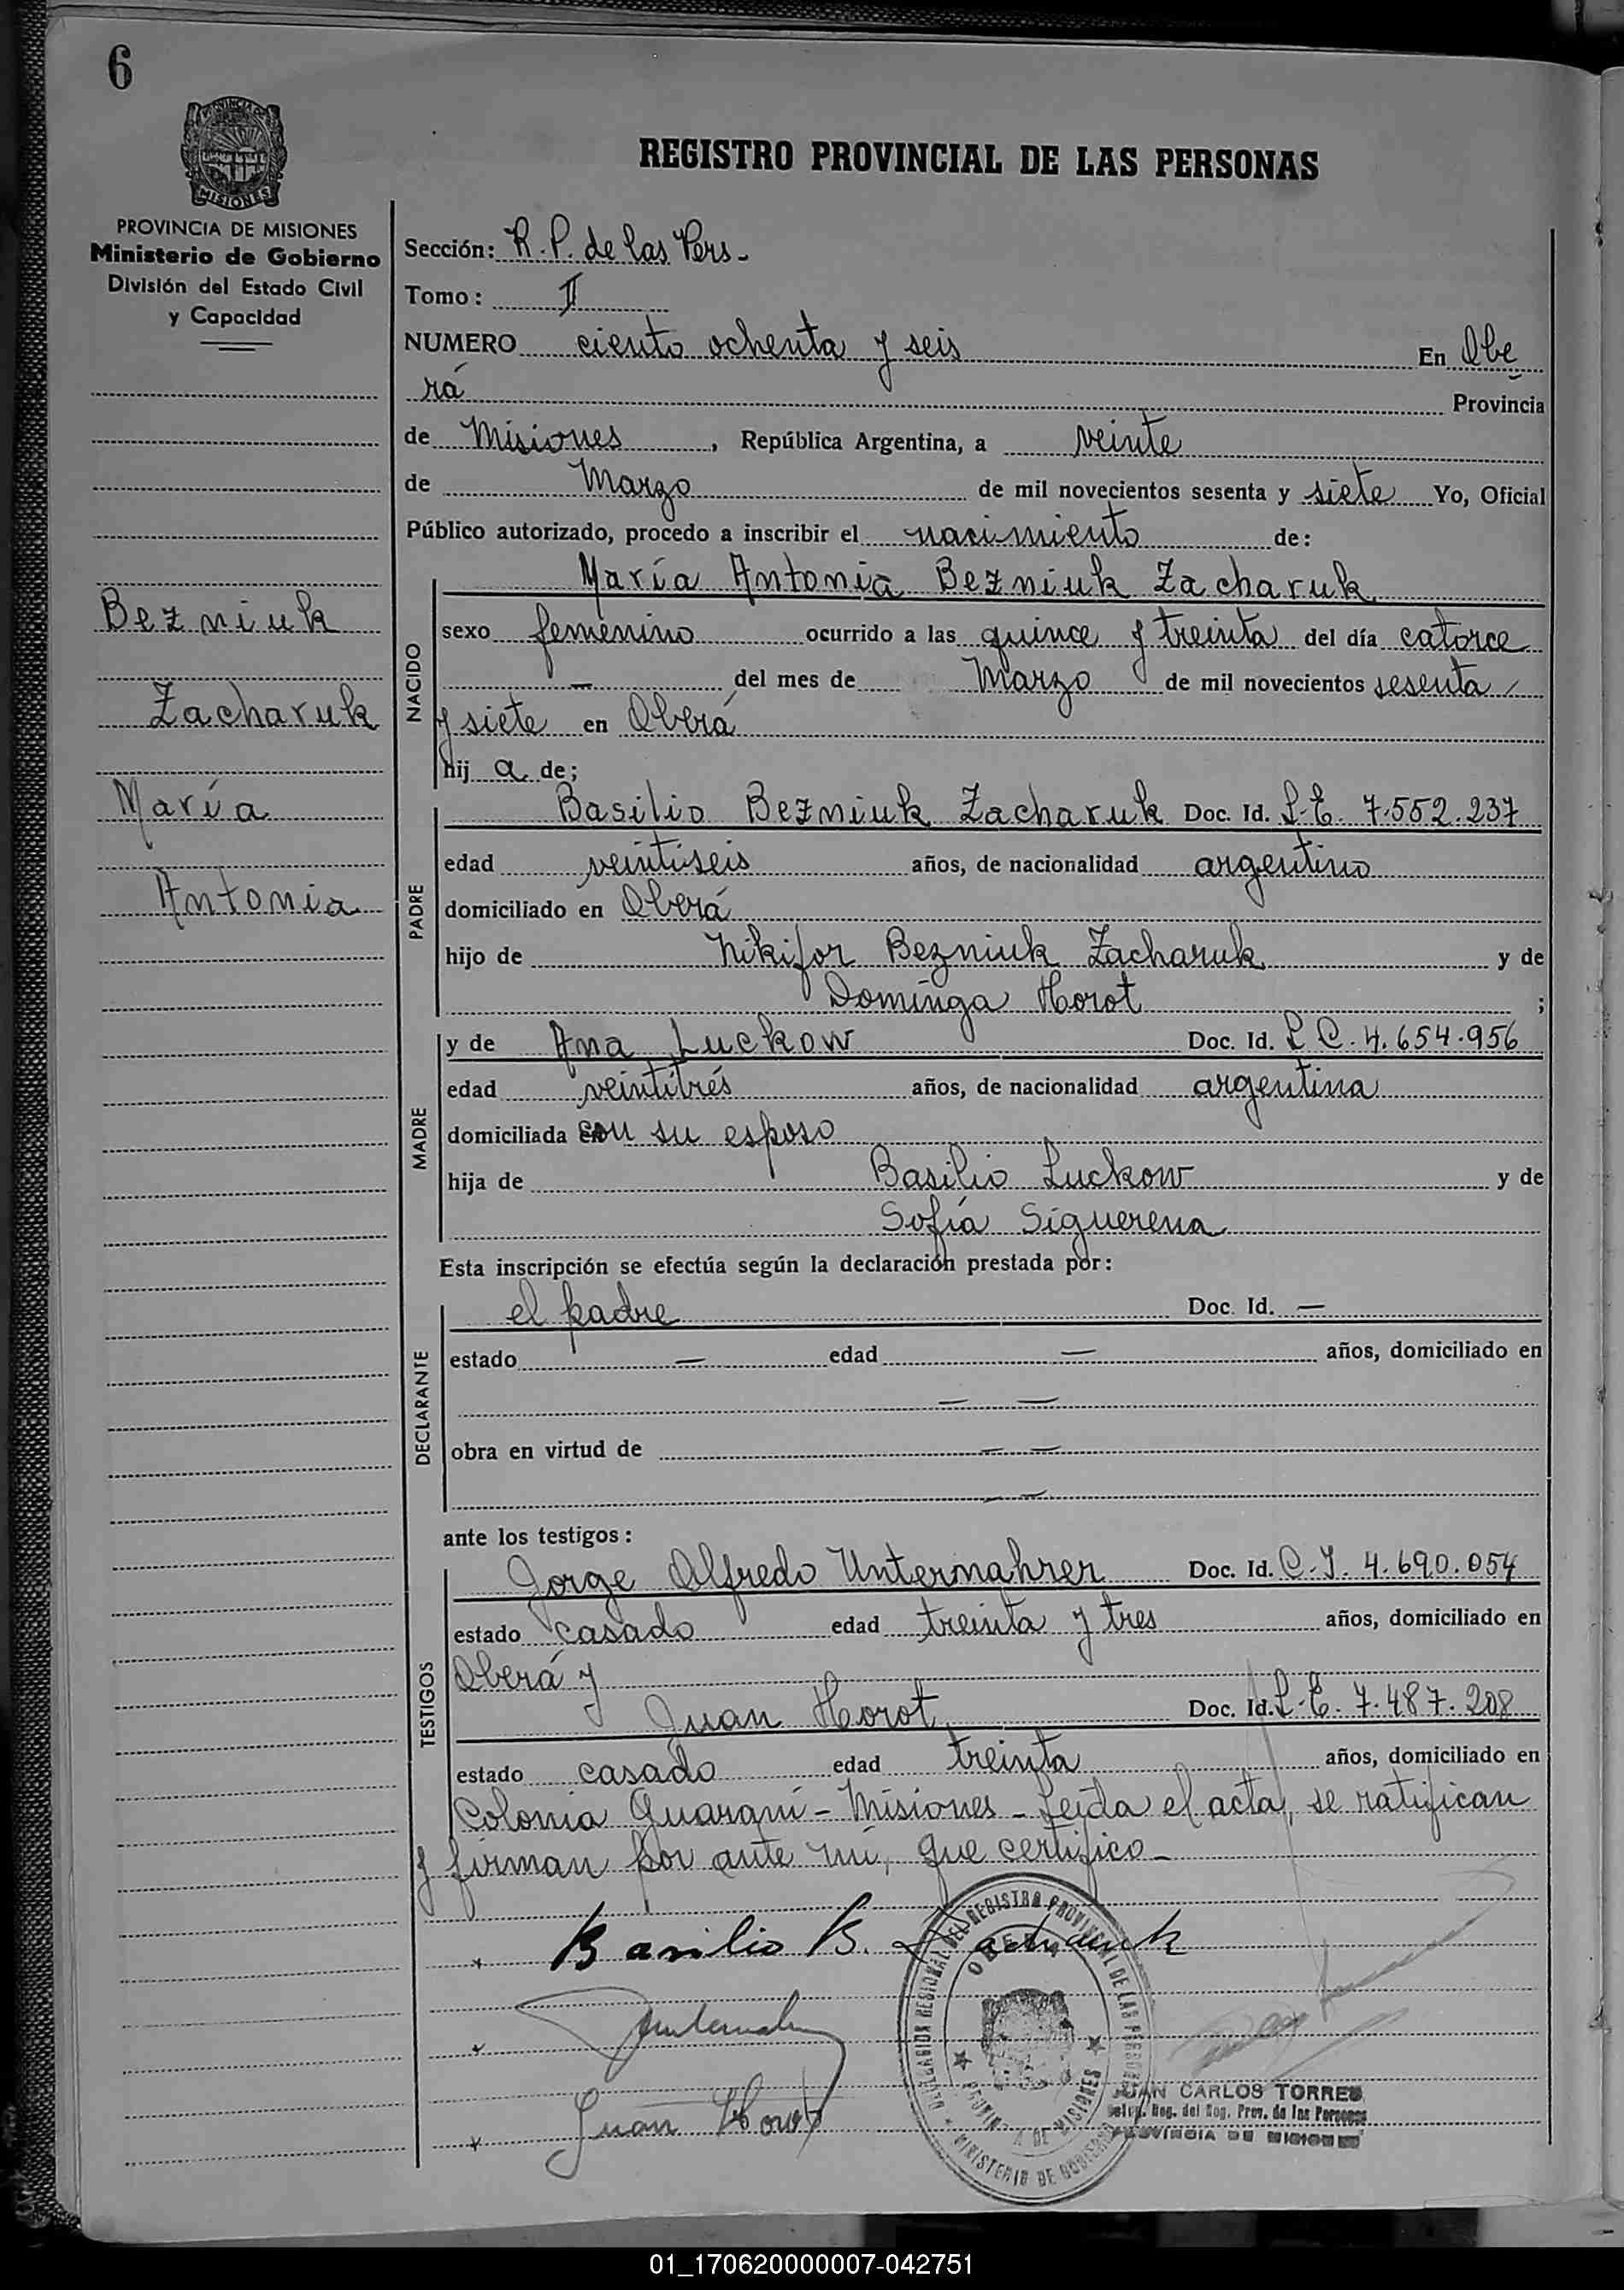 6
PROVINCIA DE
MISIONES
PROVINCIA DE MISIONES
Ministerio de Gobierno
División del Estado Civil
y Capacidad
Bezniuk
Zacharuk
María
Antonia
REGISTRO PROVINCIAL DE LAS PERSONAS
Sección: R. P. de las Pers -
Tomo: II
NUMERO ciento ochenta y seis En Obe
rá Provincia
de Misiones, República Argentina, a veinte
de Marzo de mil novecientos sesenta y siete Yo, Oficial
Público autorizado, procedo a inscribir el nacimiento de:
NACIDO
María Antonia Bezniuk Zacharuk
sexo femenino ocurrido a las quince y treinta del día catorce
— del mes de Marzo de mil novecientos sesenta
y siete en Oberá
hij a de;
PADRE
Basilio Bezniuk Zacharuk Doc. Id. L.E. 7.552.237
edad veintiseis años, de nacionalidad argentino
domiciliado en Oberá
hijo de Nikifor Bezniuk Zacharuk y de
Dominga Horot ;
MADRE
y de Ana Luckow Doc. Id. L C. 4.654.956
edad veintitrés años, de nacionalidad argentina
domiciliada con su esposo
hija de Basilio Luckow y de
Sofía Siguerena
Esta inscripción se efectúa según la declaración prestada por:
DECLARANTE
el padre Doc. Id. —
estado — edad — años, domiciliado en
— —
obra en virtud de — —
— —
ante los testigos:
TESTIGOS
Jorge Alfredo Untermahrer Doc. Id. C.I. 4.690.054
estado casado edad treinta y tres años, domiciliado en
Oberá y
Juan Horot Doc. Id. L.E. 7.487.208
estado casado edad treinta años, domiciliado en
Colonia Guaraní - Misiones - Leída el acta, se ratifican
y firman por ante mí, que certifico -
Basilio B. Zacharuk
Juan Horot
DELEGACION REGIONAL DEL REGISTRO PROVINCIAL DE LAS PERSONAS
OBERA
PROVINCIA DE MISIONES
MINISTERIO DE GOBIERNO
JUAN CARLOS TORRES
Reg. del Reg. Prov. de las Personas
PROVINCIA DE MISIONES
01_170620000007-042751